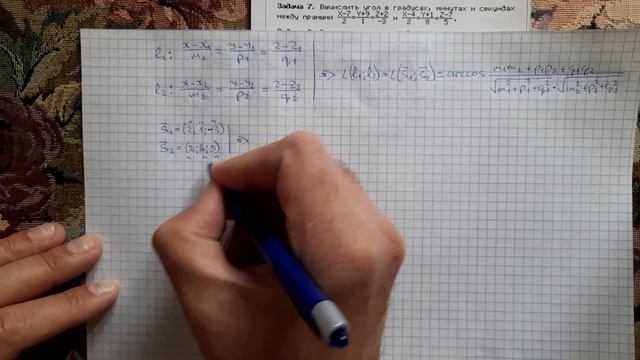 Задача 7. Вычислить угол в градусах, минутах и секундах
между прямыми X-7/2=Y+9/1=Z+2/-3 и X-4/2=Y+1/8=Z-7/5.
l₁: x-x₁/m₁ = y-y₁/p₁ = z-z₁/q₁
l₂: x-x₂/m₂ = y-y₂/p₂ = z-z₂/q₂
=> ∠(l₁;l₂)=∠(s₁;s₂)=arccos m₁m₂+p₁p₂+q₁q₂/√m₁²+p₁²+q₁²·√m₂²+p₂²+q₂²
s₁=(2;1;-3)
s₂=(2;8;5)
=>